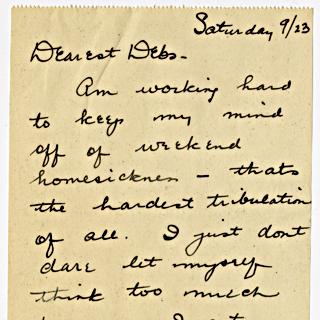 Saturday 9/23
Dearest Debs-
Am working hard
to keep my mind
off of weekend
homesickness - thats
the hardest tribulation
of all. I just dont
dare let myself
think too much